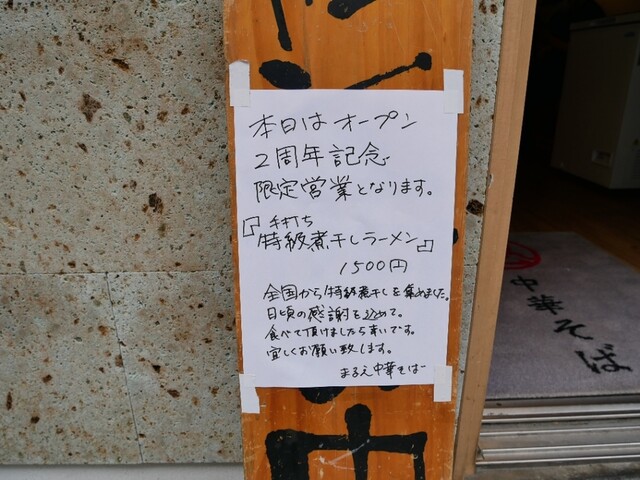 本日はオープン
2周年記念
限定営業となります。
『手打ち
特級煮干しラーメン』
1500円
全国から特級煮干しを集めました。
日頃の感謝を込めて。
食べて頂けましたら幸いです。
宜しくお願い致します。
まるえ中華そばー
中
中華そば